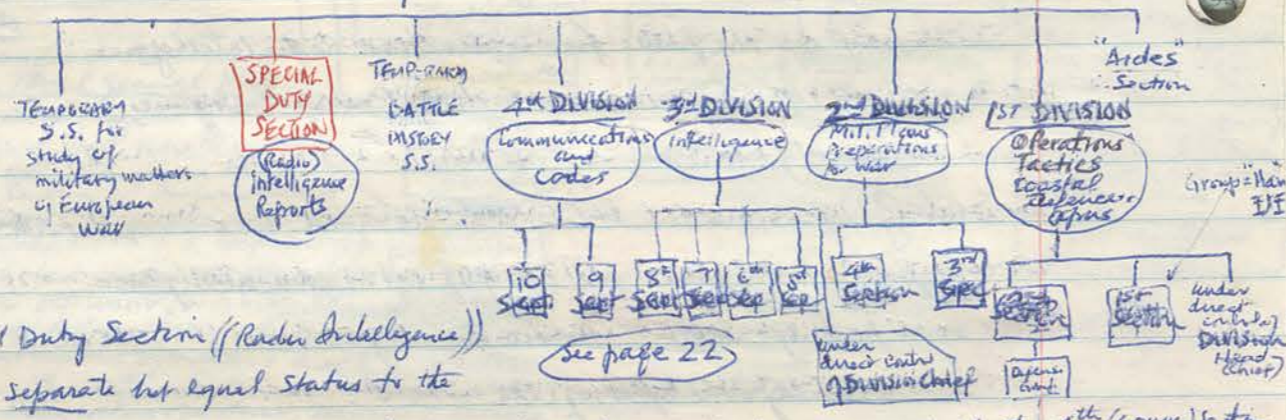 TEMPORARY
S.S. for
study of
military matters
of European
WAR
SPECIAL
DUTY
SECTION
(Radio)
Intelligence
Reports
BATTLE
HISTORY
S.S.
4th DIVISION
Communications
and
Codes
3rd DIVISION
Intelligence
2nd DIVISION
Preparations
for War
1ST DIVISION
Operations
Tactics
Coastal
Defense
"Aides"
Section
Group =
10
Sect
9
Sect
8th
Sect
7
Sect
6th
Sep
5th
Sep
4th
Section
3rd
Sec
Section
1st
Section
under
direct
control
DIVISION
Head
(Chief)
See page 22
under
direct contr
of DIVISION Chief
Duty Section ((Radio Intelligence))
separate but equal status to the